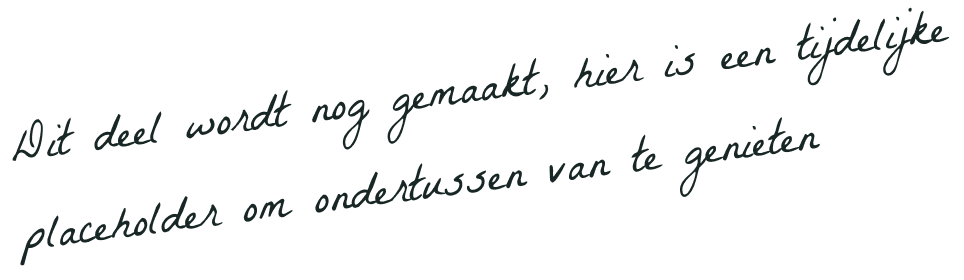 Dit deel wordt nog gemaakt, hier is een tijdelijke
placeholder om ondertussen van te genieten